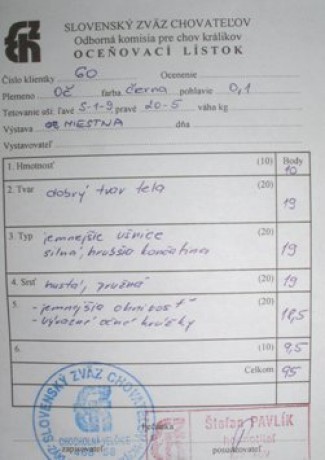 SLOVENSKÝ ZVÄZ CHOVATEĽOV
Odborná komisia pre chov králikov
OCEŇOVACÍ LÍSTOK
Číslo klietky 60 Ocenenie
Plemeno OČ farba čierna pohlavie 0,1
Tetovanie uší: ľavé 5-1-9 pravé 20-5 váha kg
Výstava MIESTNA dňa
Vystavovateľ
1. Hmotnosť (10) Body 10
2. Tvar dobrý tvar tela (20) 19
3. Typ jemnejšie ušnice (20)
silná, hrubšia končatina 19
4. Srsť hustá, pružná (20) 19
5. -jemnejšia obrúbosť (20)
-výrazné očné krúžky 18,5
6. (10) 9,5
Celkom 95
SLOVENSKÝ ZVÄZ CHOVATEĽOV
CHOCHOLNÁ VELČICE
Štefan PAVLÍK
zapisovateľ posudzovateľ